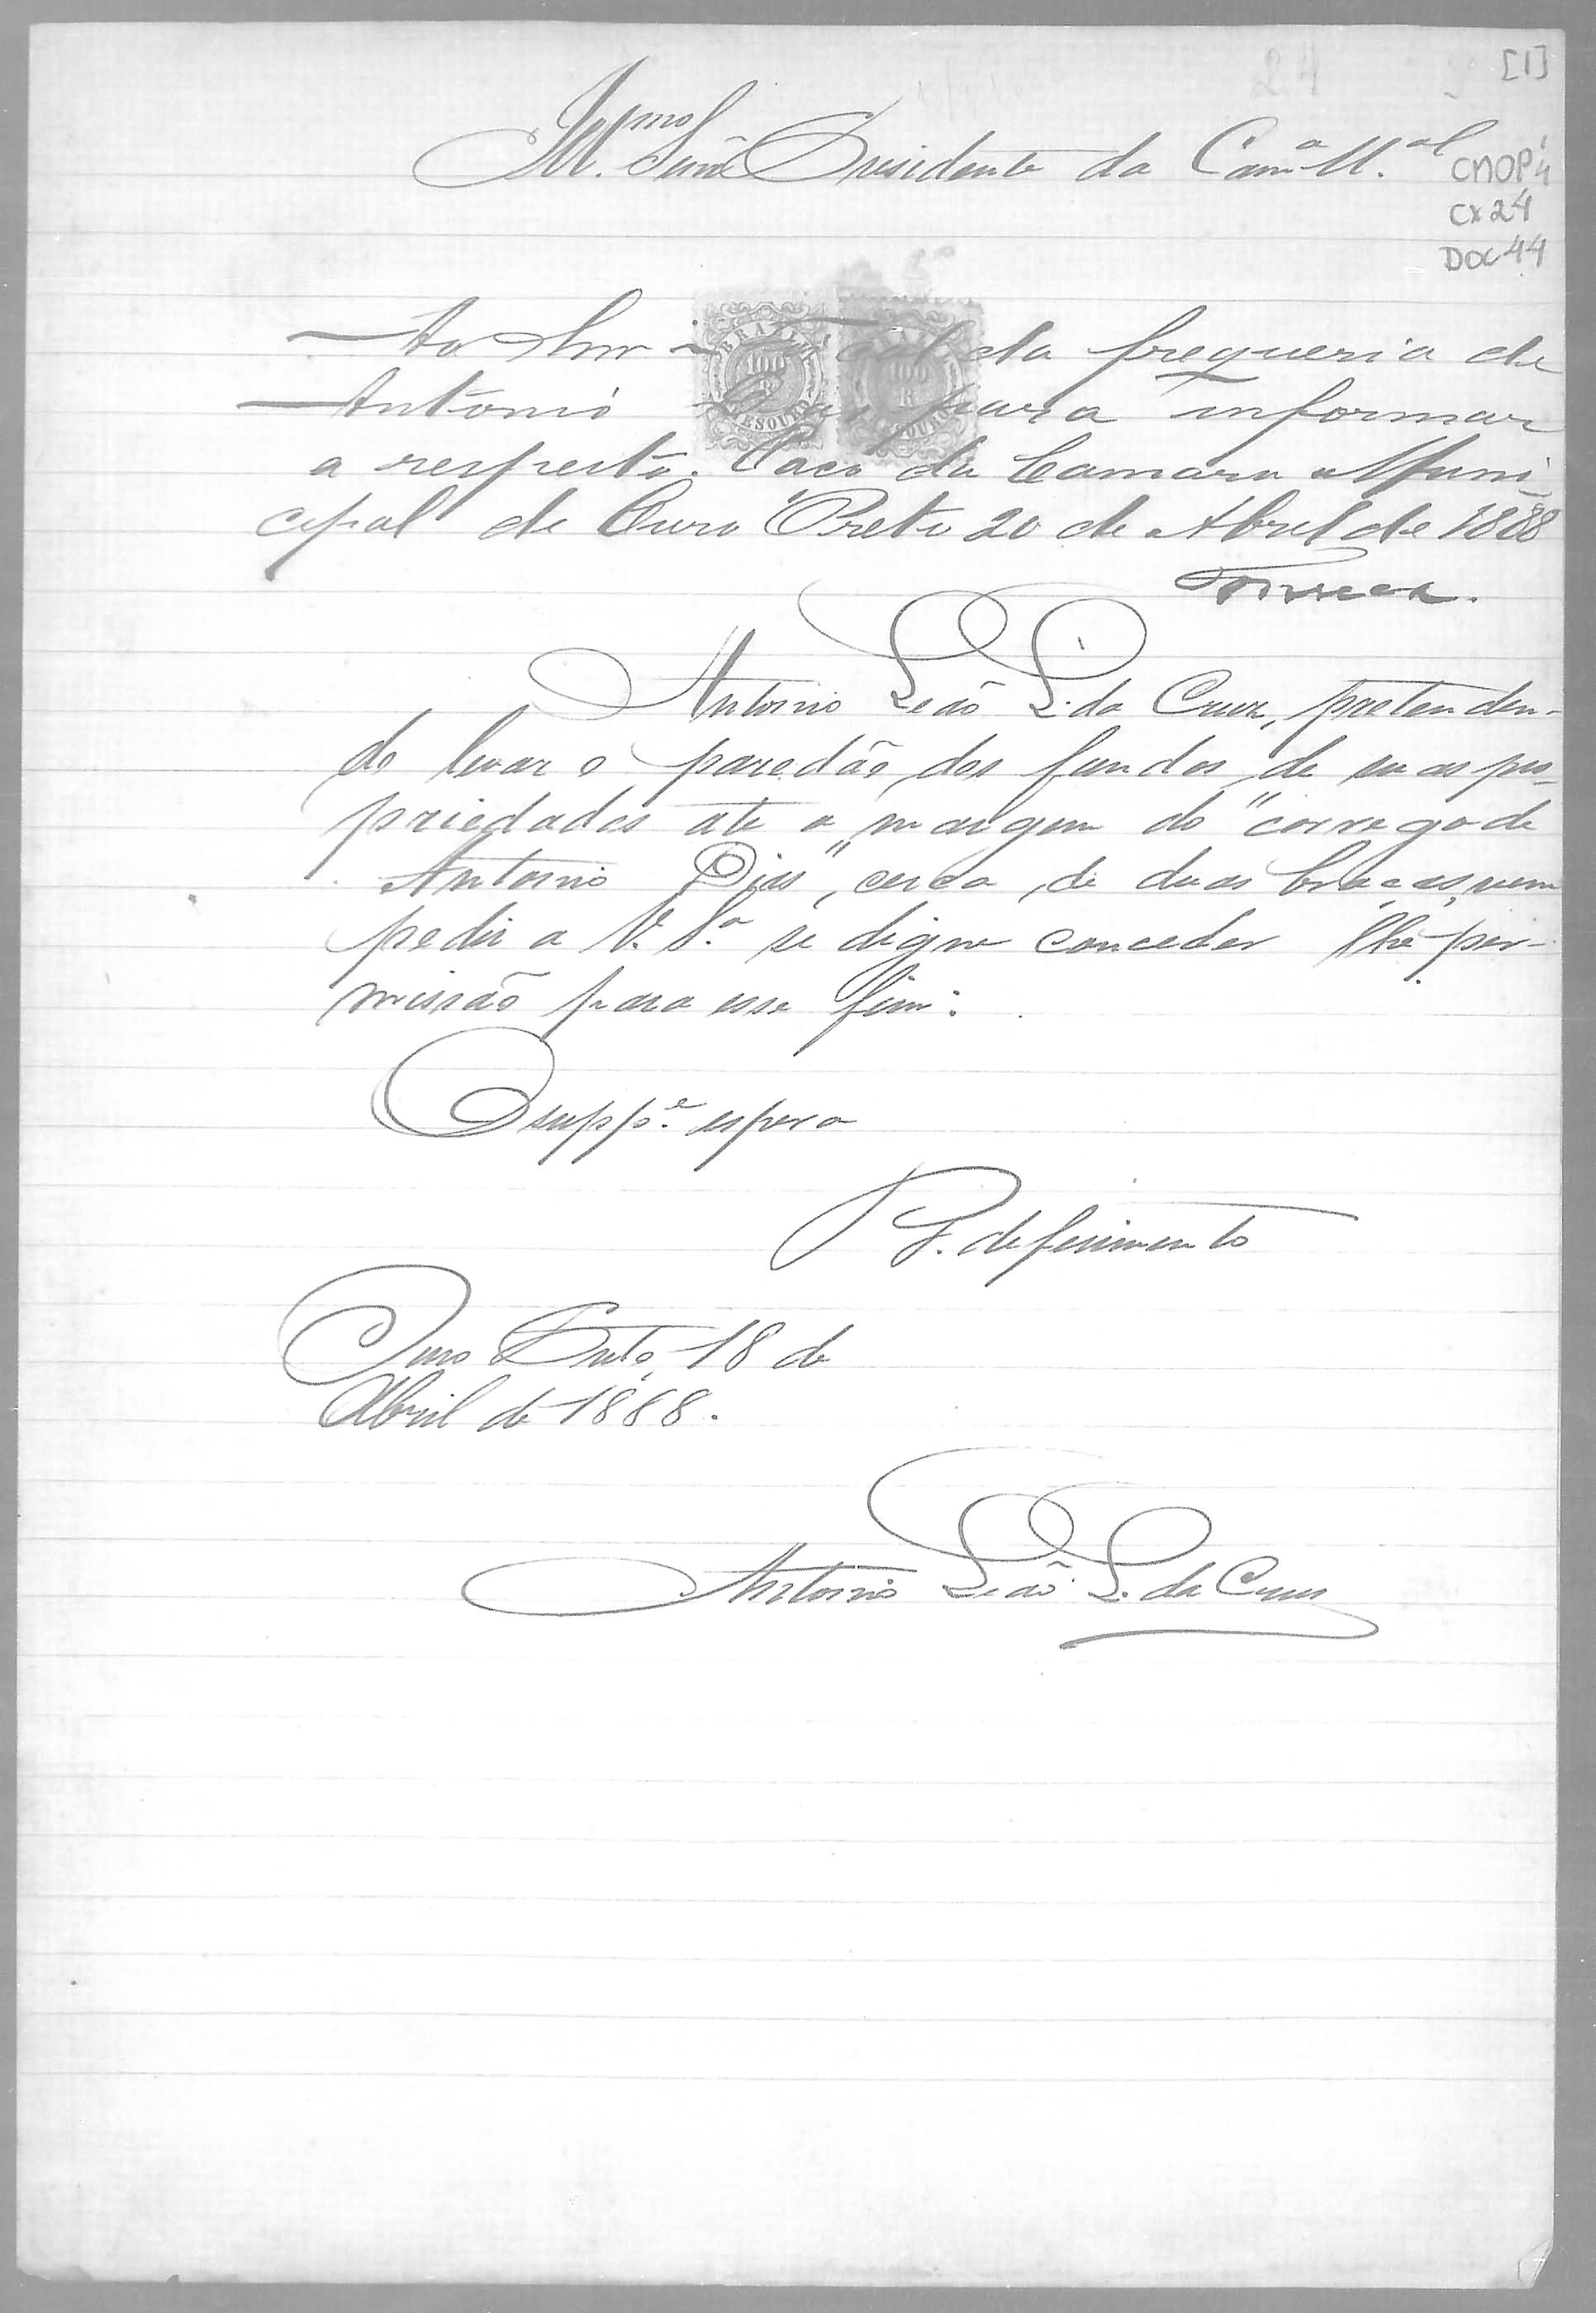 [1]
Ill.mo Senr. Presidente da Cam.a M.al
CMOP
Cx 24
DOC 44
Ao Snr fiscal da freguesia de
Antonio Dias para informar
a respeito. Paço da Camara Muni
cipal de Ouro Preto 20 de Abril de 1888
Fonseca.
BRAZIL 100 R THESOURO
100 R
Antonio Leão L. da Cruz, pretenden-
do levar o paredão dos fundos de suas pro-
priedades até a margem do "corrego de
Antonio Dias", cerca de duas braças, vem
pedir a V. S.a se digne conceder-lhe per-
missão para esse fim.
O supp.e espera
P. deferimento
Ouro Preto, 18 de
Abril de 1888.
Antonio Leão L. da Cruz